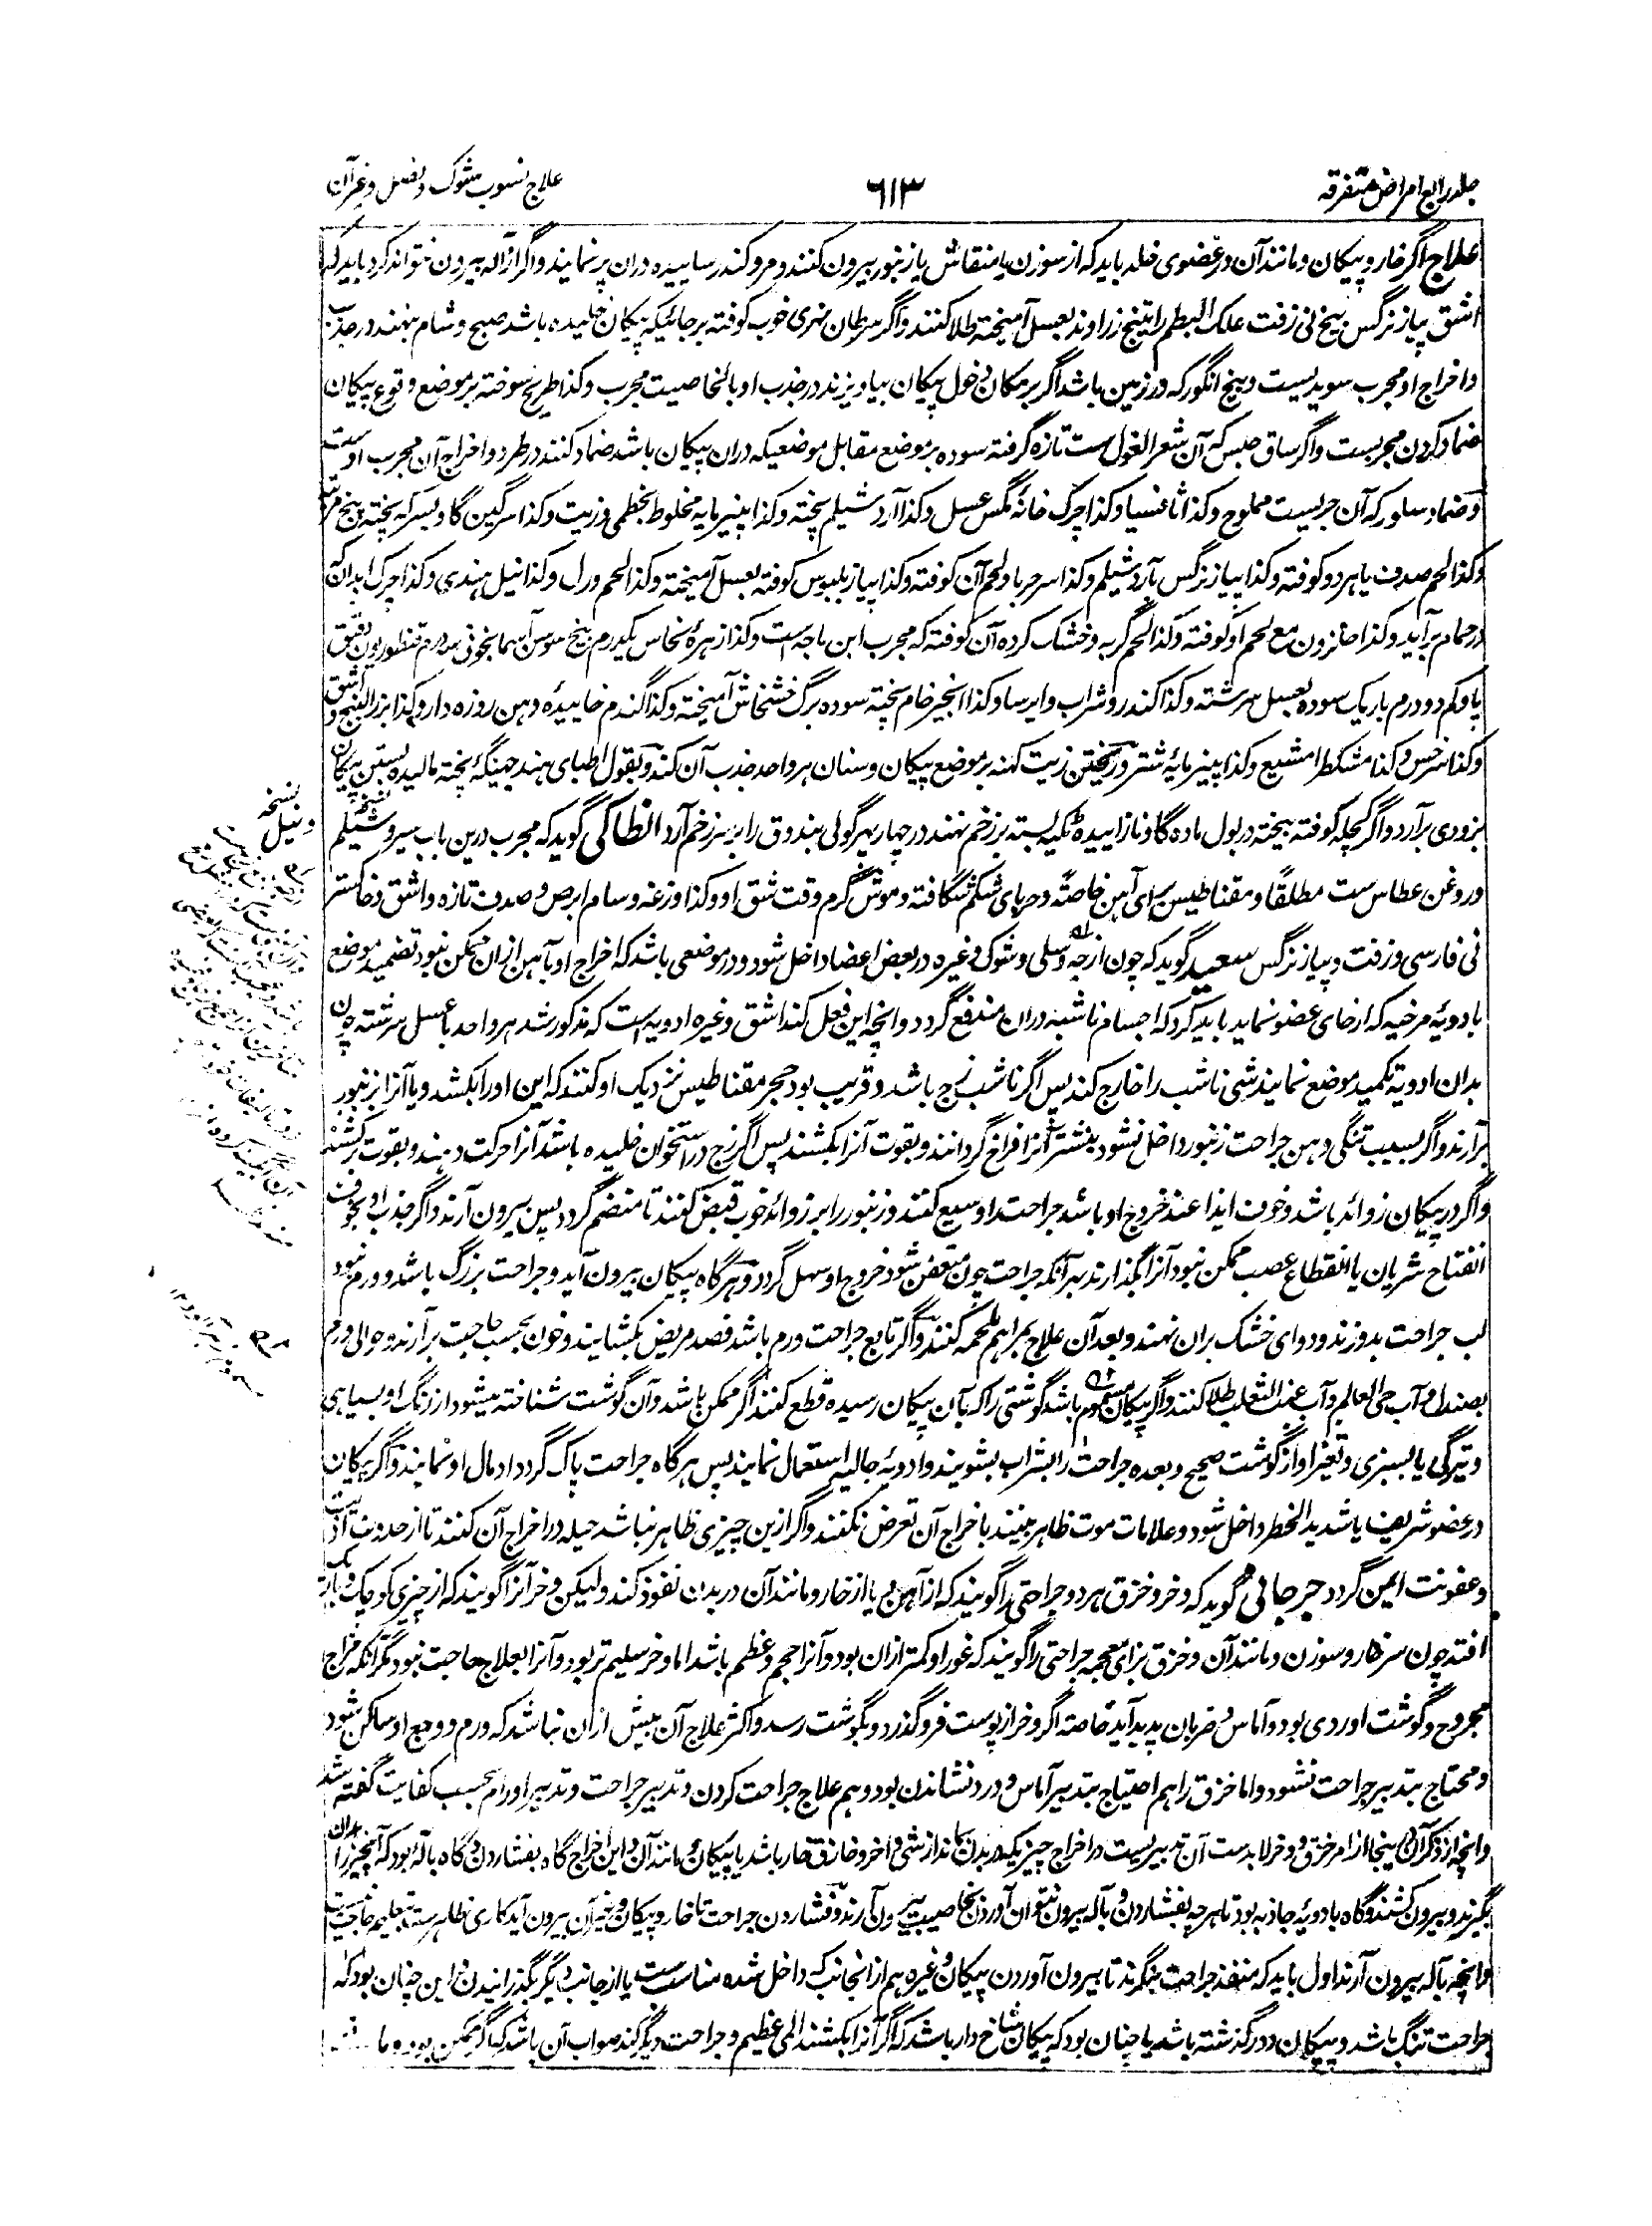 جلد رابع امراض متفرقه
٦١٣
علاج نسوب شوک و نصل و غیر آن
علاج اگر خار و پیکان و مانند آن در عضوی خلد باید که از سوزن یا منقاش یا زنبور بیرون کنند و مر و کندر ساییده دران پر نمایند و اگر از آله بیرون نتواند کرد باید که
اشق پیاز نرگس بیخ نی زفت علک البطم راتینج زراوند بعسل آمیخته طلا کنند و اگر سرطان نهری خوب کوفته بر جائیکه پیکان خلیده باشد صبح و شام بنهند در جذب
و اخراج او مجرب سویدیست و بیخ انگور که در زمین باشد اگر بر مکان دخول پیکان بیاویزند در جذب او بالخاصیت مجرب و کذا طریخ سوخته بر موضع وقوع پیکان
ضماد کردن مجربست و اگر ساق حبس که آن شعر الغول ست تازه گرفته سوده بر موضع مقابل موضعیکه دران پیکان باشد ضماد کنند در طرد و اخراج آن مجرب اوست
و ضماد سلور که آن جریست مملوح و کذا ثافسیا و کذا چرک خانهٔ مگس عسل و کذا آرد شیلم پخته و کذا پنیر مایه مخلوط بخطمی و زیت و کذا سرگین گاو بسرکه پخته بیخ مرتبه
و کذا لحم صدف یا هر دو کوفته و کذا پیاز نرگس بآرد شیلم و کذا سر حربا و لحم آن کوفته و کذا پیاز بلبوس کوفته بعسل آمیخته و کذا لحم ورل و کذا نیل هندی و کذا چرک ابدان که
در حمام برآید و کذا حلزون مع لحم او کوفته و کذا لحم گربه و خشک کرده آن کوفته که مجرب ابن باجه است و کذا زهرهٔ نحاس یکدرم بیخ سوسن آسمانجونی سه درم قنطوریون دقیق
پاو کم دو درم باریک سوده بعسل سرشته و کذا کندر و شراب و ایرسا و کذا انجیر خام پخته سوده برگ خشخاش آمیخته و کذا گندم خاییدهٔ دهن روزه دار و کذا بزر البنج و اشق
و کذا سرخس و کذا مشکطرامشیع و کذا پنیر مایهٔ شتر و ریختن زیت کهنه بر موضع پیکان و سنان هر واحد جذب آن کند و بقول اطبای هند جهینگه پخته مالیده بستن پیکان
بزودی برآرد و اگر کچله کوفته بیخته در بول ماده گاو نازاییده تکیه بسته بر زخم نهند در چهار پهر گولی بندوق را بر سر زخم آرد انطاکی گوید که مجرب درین باب سیر و شیلم
و روغن عطاس ست مطلقًا و مقناطیس برای آهن خاصةً و حربای شکم شگافته و موش گرم وقت شق او و کذا وزغه و سام ابرص و صدف تازه و اشق و خاکستر
نی فارسی و زفت و پیاز نرگس سعید گوید که چون ازجه و سلی و شوک و غیره در بعض اعضا داخل شود و در موضعی باشد که اخراج او بآهن ازان ممکن نبود تضمید موضع
بادویهٔ مرخیه که ارخای عضو نماید باید کرد که اجسام ناشبه دران مندفع گردد و انچه این فعل کند اشق و غیره ادویه است که مذکور شد هر واحد با عسل سرشته چون
بدان ادویه تکمید موضع نمایند شی ناشب را خارج کند پس اگر ناشب زج باشد و قریب بود حجر مقناطیس نزدیک او کنند که این او را بکشد و یا آنرا بزنبور
برآرند و اگر بسبب تنگی دهن جراحت زنبور داخل نشود بنشتر آنرا فراخ گردانند و بقوت آنرا بکشند پس اگر زج در استخوان خلیده باشد آنرا حرکت دهند و بقوت برکشند
و اگر در پیکان زوائد باشد و خوف ایذا عند خروج او باشد جراحت را وسیع کنند و زنبور را بر زوائد خوب قبض کنند تا منضم گردد پس بیرون آرند و اگر جذب او بخوف
انفتاح شریان یا انقطاع عصب ممکن نبود آنرا بگذارند بر آنکه جراحت چون متعفن شود خروج او سهل گردد و هرگاه پیکان بیرون آید و جراحت بزرگ باشد و ورم نبود
لب جراحت بدوزند و دوای خشک بران نهند و بعد آن علاج بمراهم ملحمه کنند و اگر تابع جراحت ورم باشد فصد مریض بگشایند و خون بحسب حاجت برآرند و حوالی ورم
بصندل و آب حی العالم و آب عنب الثعلب طلا کنند و اگر پیکان مسموم باشد گوشتی را که بآن پیکان رسیده قطع کنند اگر ممکن باشد و آن گوشت شناخته میشود از رنگ او بسیاهی
و تیرگی یا بسبزی و تغیر او از گوشت صحیح و بعده جراحت را بشراب بشویند و ادویهٔ جالیه استعمال نمایند پس هرگاه جراحت پاک گردد ادمال او نمایند و اگر پیکان
در عضو شریف یا شدید الخطر داخل شود و علامات موت ظاهر بینند باخراج آن تعرض نکنند و اگر ازین چیزی ظاهر نباشد حیله در اخراج آن کنند تا از حدوث آفت
و عفونت ایمن گردد جرجانی گوید که وخز و خزق هر دو جراحتی را گویند که از آهن یا از خار و مانند آن در بدن نفوذ کند و لیکن وخز آنرا گویند که از چیزی کوچک و باریک
افتد چون سر خار و سوزن و مانند آن و خزق بزای معجمه جراحتی را گویند که غور او کمتر ازان بود و آنرا حجم و عظم باشد اما وخز سلیم تر بود و آنرا بعلاج حاجت نبود مگر آنکه مزاج
مجروح و گوشت او ردی بود و آماس و ضربان پدید آید خاصه اگر وخز از پوست فرو گذرد و بگوشت رسد و اکثر علاج آن بیش ازان نباشد که ورم و وجع او ساکن شود
و محتاج بتدبیر جراحت نشود و اما خزق را هم احتیاج بتدبیر آماس و درد نشاندن بود و هم علاج جراحت کردن و تدبیر جراحت و تدبیر اورام بحسب کفایت گفته شد
و انچه از ذکر آن اینجا از امر خزق و وخز لابدست آن تدبیریست در اخراج چیزیکه در بدن بماند از شی واخز و خازق خار باشد یا پیکان و مانند آن و این اخراج گاه بفشاردن و گاه بآله بود که آنچیز را بدان
بگیرند و بیرون کشند و گاه بادویهٔ جاذبه بود تا هرچه بفشاردن و بآله بیرون نتوان آوردن بخاصیت بیرون آرند و فشاردن جراحت تا خار و پیکان و غیر آن بیرون آید کاری ظاهرست بتعلیم حاجت نیست
و انچه بآله بیرون آرند اول باید که منفذ جراحت بنگرند تا بیرون آوردن پیکان و غیره هم از آنجانب که داخل شده مناسبست یا از جانب دیگر بگذرانیدن و این چنان بود که
جراحت تنگ باشد و پیکان دور گذشته باشد یا چنان بود که پیکان شاخ دار باشد که اگر آنرا بکشند المی عظیم و جراحت دیگر کند صواب آن باشد که اگر ممکن بود
نسخه
و نیل